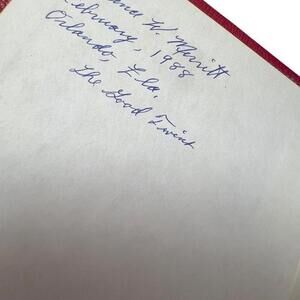 W. Merritt
February, 1988
Orlando, Fla.
The Good Twink